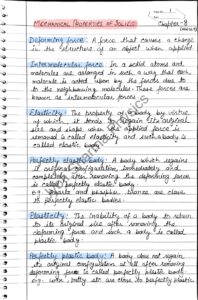 MECHANICAL PROPERTIES OF SOLIDS Chapter-8
Deforming force : A force that causes a change
in the structure of an object when applied
Intermolecular force : In a solid atoms and
molecules are arranged in such a way that each
molecule is acted upon by the forces due to
the neighbouring molecules. These forces are
known as intermolecular forces.
Elasticity : The property of a body by virtue
of which it tends to regain its original
size and shape when the applied force is
removed is called elasticity and such body is
called elastic body.
Perfectly elastic body : A body which regains
its original configuration immediately and
completely after removing the deforming force
is called perfectly elastic body.
e.g. quartz and phosphor bronze are close to
perfectly elastic bodies.
Elasticity : The inability of a body to return
to its original size after removing the
deforming force and such a body is called
plastic body.
Perfectly plastic body : A body does not regain
its original configuration at all after removing
deforming force is called perfectly plastic body.
e.g. wax, putty etc are close to perfectly plastic.